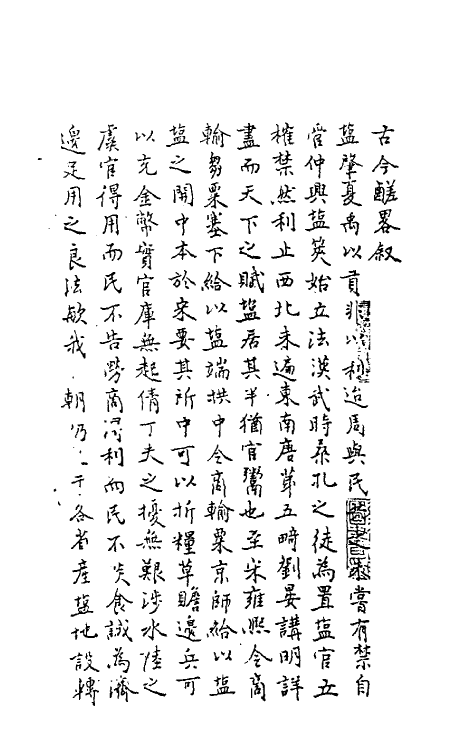 古今鹺畧叙
塩肇夏禹以貢非以利迨周與民未嘗有禁自
管仲興塩筴始立法漢武時桑孔之徒為置塩官立
榷禁然利止西北未遍東南唐第五畸劉晏講明詳
盡而天下之賦塩居其半猶官鬻也至宋雍熙令商
輸芻粟塞下給以塩端拱中令商輸粟京師給以塩
塩之開中本於宋要其所中可以折糧草贍邊兵可
以充金幣實官庫無起倩丁夫之擾無艱涉水陸之
虞官得用而民不告勞商得利而民不淡食誠為濟
邊足用之良法歟我朝乃于各省產塩地設轉